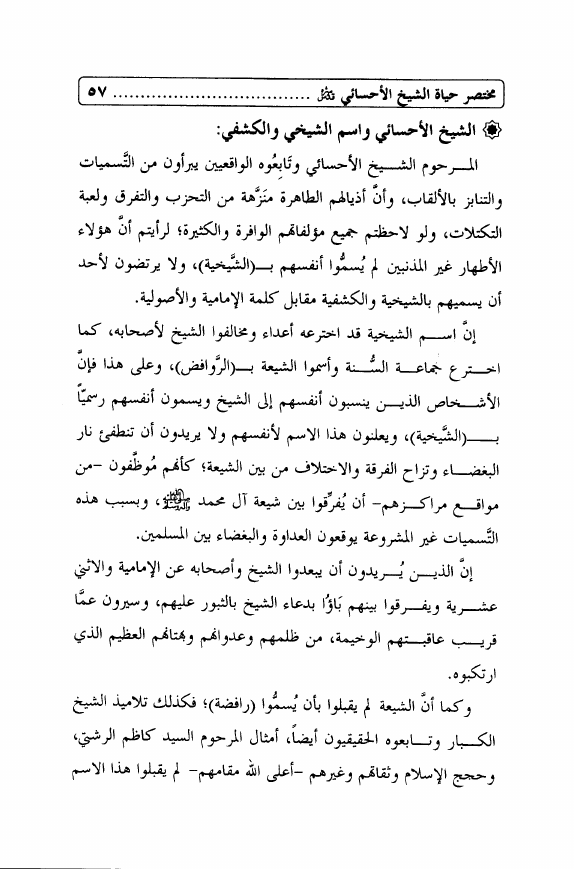 مختصر حياة الشيخ الأحسائي ................................... ٥٧
الشيخ الأحسائي واسم الشيخي والكشفي:
المـرحوم الشـيخ الأحسائي وتَابِعُوه الواقعيين يبرأون من التَّسميات
والتنابز بالألقاب، وأنَّ أذيالهم الطاهرة منَزَّهة من التحزب والتفرق ولعبة
التكتلات، ولو لاحظتم جميع مؤلفاتهم الوافرة والكثيرة؛ لرأيتم أنَّ هؤلاء
الأطهار غير المذنبين لم يُسمُّوا أنفسهم بـ(الشَّيخية)، ولا يرتضون لأحد
أن يسميهم بالشيخية والكشفية مقابل كلمة الإمامية والأصولية.
إنَّ اسـم الشيخية قد اخترعه أعداء ومخالفوا الشيخ لأصحابه، كما
اخـترع جماعـة السُّـنة وأسموا الشيعة بـ(الرَّوافض)، وعلى هذا فإنَّ
الأشـخاص الذيـن ينسبون أنفسهم إلى الشيخ ويسمون أنفسهم رسميّاً
بـ(الشَّيخية)، ويعلنون هذا الاسم لأنفسهم ولا يريدون أن تنطفئ نار
البغضـاء وتزاح الفرقة والاختلاف من بين الشيعة؛ كأنهم مُوظَّفون -من
مواقـع مراكـزهم- أن يُفرِّقوا بين شيعة آل محمد، وبسبب هذه
التَّسميات غير المشروعة يوقعون العداوة والبغضاء بين المسلمين.
إنَّ الذيـن يُـريدون أن يبعدوا الشيخ وأصحابه عن الإمامية والاثني
عشـرية ويفـرقوا بينهم بَاؤُا بدعاء الشيخ بالثبور عليهم، وسيرون عمَّا
قريـب عاقبـتهم الوخيمة، من ظلمهم وعدوانهم وبهتانهم العظيم الذي
ارتكبوه.
وكما أنَّ الشيعة لم يقبلوا بأن يُسمُّوا (رافضة)؛ فكذلك تلاميذ الشيخ
الكـبار وتـابعوه الحقيقيون أيضاً، أمثال المرحوم السيد كاظم الرشتي،
وحجج الإسلام وثقاتهم وغيرهم -أعلى الله مقامهم- لم يقبلوا هذا الاسم